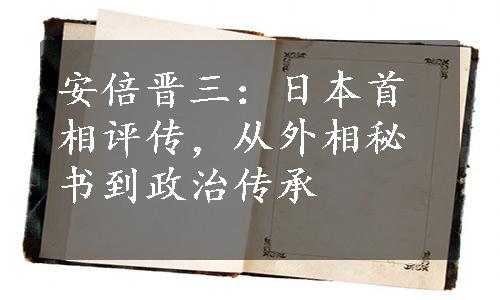 安倍晋三：日本首
相评传，从外相秘
书到政治传承